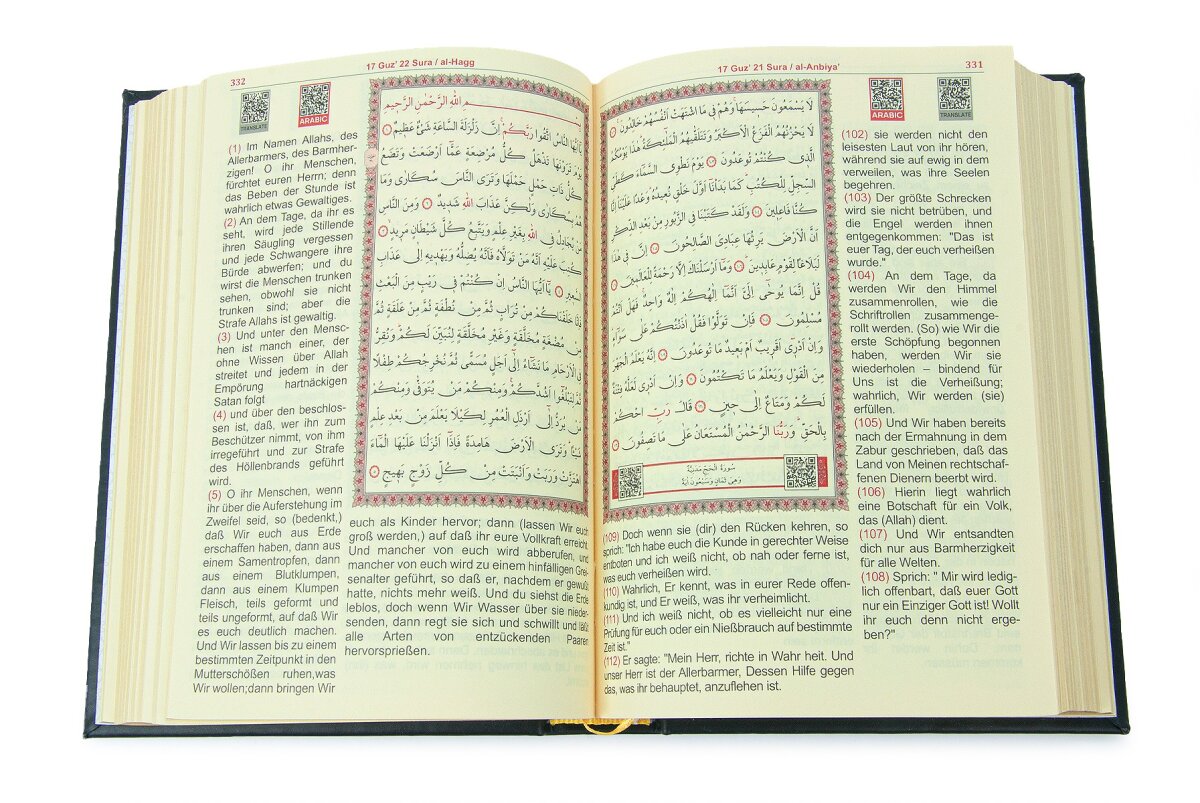 17 Guz' 21 Sura / al-Anbiya'
331
ARABIC
TRANSLATE
لَا يَسْمَعُونَ حَسِيسَهَا وَهُمْ فِي مَا اشْتَهَتْ اَنْفُسُهُمْ خَالِدُونَ
لَا يَحْزُنُهُمُ الْفَزَعُ الْاَكْبَرُ وَتَتَلَقّٰيهُمُ الْمَلٰٓئِكَةُ هٰذَا يَوْمُكُمُ
الَّذِي كُنْتُمْ تُوعَدُونَ يَوْمَ نَطْوِي السَّمَٓاءَ كَطَيِّ
السِّجِلِّ لِلْكُتُبِ كَمَا بَدَأْنَٓا اَوَّلَ خَلْقٍ نُعِيدُهُ وَعْدًا عَلَيْنَا اِنَّا
كُنَّا فَاعِلِينَ وَلَقَدْ كَتَبْنَا فِي الزَّبُورِ مِنْ بَعْدِ الذِّكْرِ
اَنَّ الْاَرْضَ يَرِثُهَا عِبَادِيَ الصَّالِحُونَ اِنَّ فِي هٰذَا
لَبَلَاغًا لِقَوْمٍ عَابِدِينَ وَمَٓا اَرْسَلْنَاكَ اِلَّا رَحْمَةً لِلْعَالَمِينَ
قُلْ اِنَّمَا يُوحٰٓى اِلَيَّ اَنَّمَٓا اِلٰهُكُمْ اِلٰهٌ وَاحِدٌ فَهَلْ اَنْتُمْ
مُسْلِمُونَ فَاِنْ تَوَلَّوْا فَقُلْ اٰذَنْتُكُمْ عَلٰى سَوَٓاءٍ
وَاِنْ اَدْرِٓي اَقَرِيبٌ اَمْ بَعِيدٌ مَا تُوعَدُونَ اِنَّهُ يَعْلَمُ الْجَهْرَ
مِنَ الْقَوْلِ وَيَعْلَمُ مَا تَكْتُمُونَ وَاِنْ اَدْرِي لَعَلَّهُ فِتْنَةٌ
لَكُمْ وَمَتَاعٌ اِلٰى حِينٍ قَالَ رَبِّ احْكُمْ
بِالْحَقِّ وَرَبُّنَا الرَّحْمٰنُ الْمُسْتَعَانُ عَلٰى مَا تَصِفُونَ
سُورَةُ الْحَجِّ مَدَنِيَّةٌ
وَهِيَ ثَمَانٍ وَسَبْعُونَ اٰيَةً
(102) sie werden nicht den
leisesten Laut von ihr hören,
während sie auf ewig in dem
verweilen, was ihre Seelen
begehren.
(103) Der größte Schrecken
wird sie nicht betrüben, und
die Engel werden ihnen
entgegenkommen: "Das ist
euer Tag, der euch verheißen
wurde."
(104) An dem Tage, da
werden Wir den Himmel
zusammenrollen, wie die
Schriftrollen zusammenge-
rollt werden. (So) wie Wir die
erste Schöpfung begonnen
haben, werden Wir sie
wiederholen – bindend für
Uns ist die Verheißung;
wahrlich, Wir werden (sie)
erfüllen.
(105) Und Wir haben bereits
nach der Ermahnung in dem
Zabur geschrieben, daß das
Land von Meinen rechtschaf-
fenen Dienern beerbt wird.
(106) Hierin liegt wahrlich
eine Botschaft für ein Volk,
das (Allah) dient.
(107) Und Wir entsandten
dich nur aus Barmherzigkeit
für alle Welten.
(108) Sprich: " Mir wird ledig-
lich offenbart, daß euer Gott
nur ein Einziger Gott ist! Wollt
ihr euch denn nicht erge-
ben?"
(109) Doch wenn sie (dir) den Rücken kehren, so
sprich: "Ich habe euch die Kunde in gerechter Weise
entboten und ich weiß nicht, ob nah oder ferne ist,
was euch verheißen wird.
(110) Wahrlich, Er kennt, was in eurer Rede offen-
kundig ist, und Er weiß, was ihr verheimlicht.
(111) Und ich weiß nicht, ob es vielleicht nur eine
Prüfung für euch oder ein Nießbrauch auf bestimmte
Zeit ist."
(112) Er sagte: "Mein Herr, richte in Wahr heit. Und
unser Herr ist der Allerbarmer, Dessen Hilfe gegen
das, was ihr behauptet, anzuflehen ist.
332
17 Guz' 22 Sura / al-Hagg
TRANSLATE
ARABIC
مِ اللهِ الرَّحْمٰنِ الرَّحِيمِ
يَٓا اَيُّهَا النَّاسُ اتَّقُوا رَبَّكُمْ اِنَّ زَلْزَلَةَ السَّاعَةِ شَيْءٌ عَظِيمٌ
يَوْمَ تَرَوْنَهَا تَذْهَلُ كُلُّ مُرْضِعَةٍ عَمَّٓا اَرْضَعَتْ وَتَضَعُ
كُلُّ ذَاتِ حَمْلٍ حَمْلَهَا وَتَرَى النَّاسَ سُكَارٰى وَمَا
هُمْ بِسُكَارٰى وَلٰكِنَّ عَذَابَ اللهِ شَدِيدٌ وَمِنَ النَّاسِ
مَنْ يُجَادِلُ فِي اللهِ بِغَيْرِ عِلْمٍ وَيَتَّبِعُ كُلَّ شَيْطَانٍ مَرِيدٍ
كُتِبَ عَلَيْهِ اَنَّهُ مَنْ تَوَلَّاهُ فَاَنَّهُ يُضِلُّهُ وَيَهْدِيهِ اِلٰى عَذَابِ
السَّعِيرِ يَٓا اَيُّهَا النَّاسُ اِنْ كُنْتُمْ فِي رَيْبٍ مِنَ الْبَعْثِ
فَاِنَّا خَلَقْنَاكُمْ مِنْ تُرَابٍ ثُمَّ مِنْ نُطْفَةٍ ثُمَّ مِنْ عَلَقَةٍ ثُمَّ
مِنْ مُضْغَةٍ مُخَلَّقَةٍ وَغَيْرِ مُخَلَّقَةٍ لِنُبَيِّنَ لَكُمْ وَنُقِرُّ
فِي الْاَرْحَامِ مَا نَشَٓاءُ اِلٰٓى اَجَلٍ مُسَمًّى ثُمَّ نُخْرِجُكُمْ طِفْلًا
ثُمَّ لِتَبْلُغُٓوا اَشُدَّكُمْ وَمِنْكُمْ مَنْ يُتَوَفّٰى وَمِنْكُمْ
مَنْ يُرَدُّ اِلٰٓى اَرْذَلِ الْعُمُرِ لِكَيْلَا يَعْلَمَ مِنْ بَعْدِ عِلْمٍ
شَيْئًا وَتَرَى الْاَرْضَ هَامِدَةً فَاِذَٓا اَنْزَلْنَا عَلَيْهَا الْمَٓاءَ
اهْتَزَّتْ وَرَبَتْ وَاَنْبَتَتْ مِنْ كُلِّ زَوْجٍ بَهِيجٍ
(1) Im Namen Allahs, des
Allerbarmers, des Barmher-
zigen! O ihr Menschen,
fürchtet euren Herrn; denn
das Beben der Stunde ist
wahrlich etwas Gewaltiges.
(2) An dem Tage, da ihr es
seht, wird jede Stillende
ihren Säugling vergessen
und jede Schwangere ihre
Bürde abwerfen; und du
wirst die Menschen trunken
sehen, obwohl sie nicht
trunken sind; aber die
Strafe Allahs ist gewaltig.
(3) Und unter den Mensc-
hen ist manch einer, der
ohne Wissen über Allah
streitet und jedem in der
Empörung hartnäckigen
Satan folgt
(4) und über den beschlos-
sen ist, daß, wer ihn zum
Beschützer nimmt, von ihm
irregeführt und zur Strafe
des Höllenbrands geführt
wird.
(5) O ihr Menschen, wenn
ihr über die Auferstehung im
Zweifel seid, so (bedenkt,)
daß Wir euch aus Erde
erschaffen haben, dann aus
einem Samentropfen, dann
aus einem Blutklumpen,
dann aus einem Klumpen
Fleisch, teils geformt und
teils ungeformt, auf daß Wir
es euch deutlich machen.
Und Wir lassen bis zu einem
bestimmten Zeitpunkt in den
Mutterschößen ruhen,was
Wir wollen;dann bringen Wir
euch als Kinder hervor; dann (lassen Wir euch
groß werden,) auf daß ihr eure Vollkraft erreicht.
Und mancher von euch wird abberufen, und
mancher von euch wird zu einem hinfälligen Grei-
senalter geführt, so daß er, nachdem er gewußt
hatte, nichts mehr weiß. Und du siehst die Erde
leblos, doch wenn Wir Wasser über sie nieder-
senden, dann regt sie sich und schwillt und läßt
alle Arten von entzückenden Paaren
hervorsprießen.